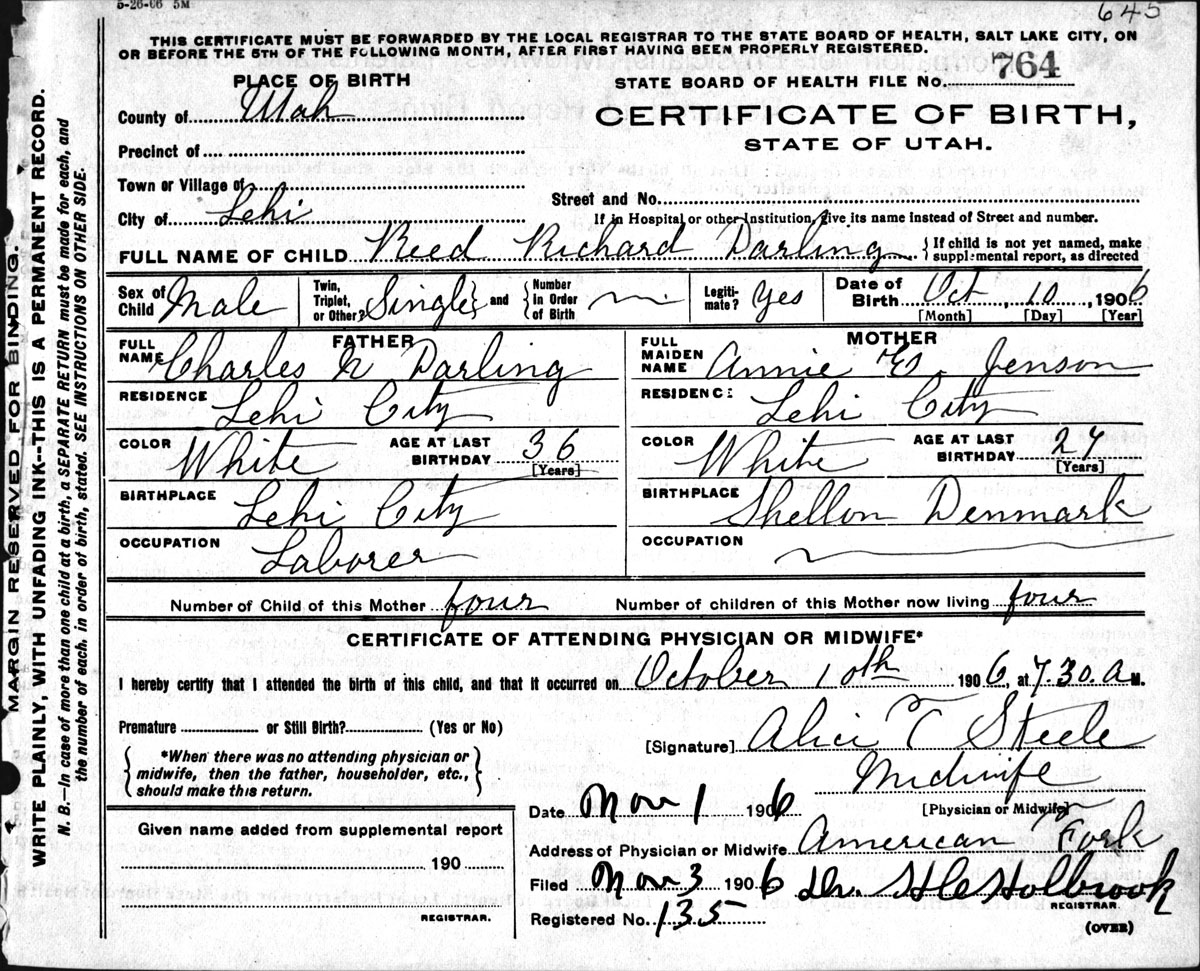 5-26-06 5M
645
THIS CERTIFICATE MUST BE FORWARDED BY THE LOCAL REGISTRAR TO THE STATE BOARD OF HEALTH, SALT LAKE CITY, ON
OR BEFORE THE 5TH OF THE FOLLOWING MONTH, AFTER FIRST HAVING BEEN PROPERLY REGISTERED.
PLACE OF BIRTH
STATE BOARD OF HEALTH FILE No. 764
County of Utah
CERTIFICATE OF BIRTH,
STATE OF UTAH.
Precinct of
Town or Village of
Street and No.
City of Lehi
If in Hospital or other Institution, give its name instead of Street and number.
FULL NAME OF CHILD Reed Richard Darling { If child is not yet named, make supplemental report, as directed
Sex of Child Male Twin, Triplet, or Other? Single } and { Number in Order of Birth Legiti-mate? Yes Date of Birth Oct, 10, 1906
[Month] [Day] [Year]
FATHER
MOTHER
FULL NAME Charles Darling
FULL MAIDEN NAME Annie E. Jenson
RESIDENCE Lehi City
RESIDENCE Lehi City
COLOR White AGE AT LAST BIRTHDAY 36 [Years]
COLOR White AGE AT LAST BIRTHDAY 27 [Years]
BIRTHPLACE Lehi City
BIRTHPLACE Shellon Denmark
OCCUPATION Laborer
OCCUPATION
Number of Child of this Mother four Number of children of this Mother now living four
CERTIFICATE OF ATTENDING PHYSICIAN OR MIDWIFE*
I hereby certify that I attended the birth of this child, and that it occurred on October 10th 1906, at 7.30.a M.
Premature or Still Birth? (Yes or No)
[Signature] Alice T Steele
*When there was no attending physician or
midwife, then the father, householder, etc.,
should make this return.
Midwife
[Physician or Midwife]
Date Nov 1 1906
Given name added from supplemental report
190
REGISTRAR.
Address of Physician or Midwife American Fork
Filed Nov 3 1906 Dr. Holbrook
REGISTRAR.
Registered No. 135
(OVER)
MARGIN RESERVED FOR BINDING.
WRITE PLAINLY, WITH UNFADING INK--THIS IS A PERMANENT RECORD.
N. B.—In case of more than one child at a birth, a SEPARATE RETURN must be made for each, and
the number of each, in order of birth, stated. SEE INSTRUCTIONS ON OTHER SIDE.